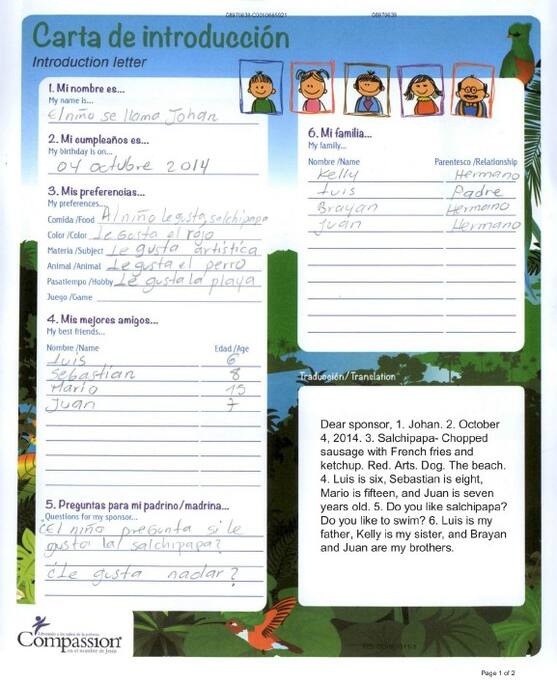 08970639-C0010665021
08970639
Carta de introducción
Introduction letter
1. Mi nombre es...
My name is...
El niño se llama Johan
2. Mi cumpleaños es...
My birthday is on...
04 octubre 2014
3. Mis preferencias...
My preferences...
Comida /Food Al niño le gusta salchipapa
Color /Color Le gusta el rojo
Materia /Subject Le gusta artística
Animal /Animal Le gusta el perro
Pasatiempo /Hobby Le gusta la playa
Juego /Game
4. Mis mejores amigos...
My best friends...
Nombre /Name Edad /Age
Luis 6
Sebastian 8
Mario 15
Juan 7
5. Preguntas para mi padrino/madrina...
Questions for my sponsor...
¿El niño pregunta si le
gusta la salchipapa?
¿Le gusta nadar?
6. Mi familia...
My family...
Nombre /Name Parentesco /Relationship
Kelly Hermano
Luis Padre
Brayan Hermano
Juan Hermano
Traducción/ Translation
Dear sponsor, 1. Johan. 2. October
4, 2014. 3. Salchipapa- Chopped
sausage with French fries and
ketchup. Red. Arts. Dog. The beach.
4. Luis is six, Sebastian is eight,
Mario is fifteen, and Juan is seven
years old. 5. Do you like salchipapa?
Do you like to swim? 6. Luis is my
father, Kelly is my sister, and Brayan
and Juan are my brothers.
Compassion
en el nombre de Jesús
Page 1 of 2